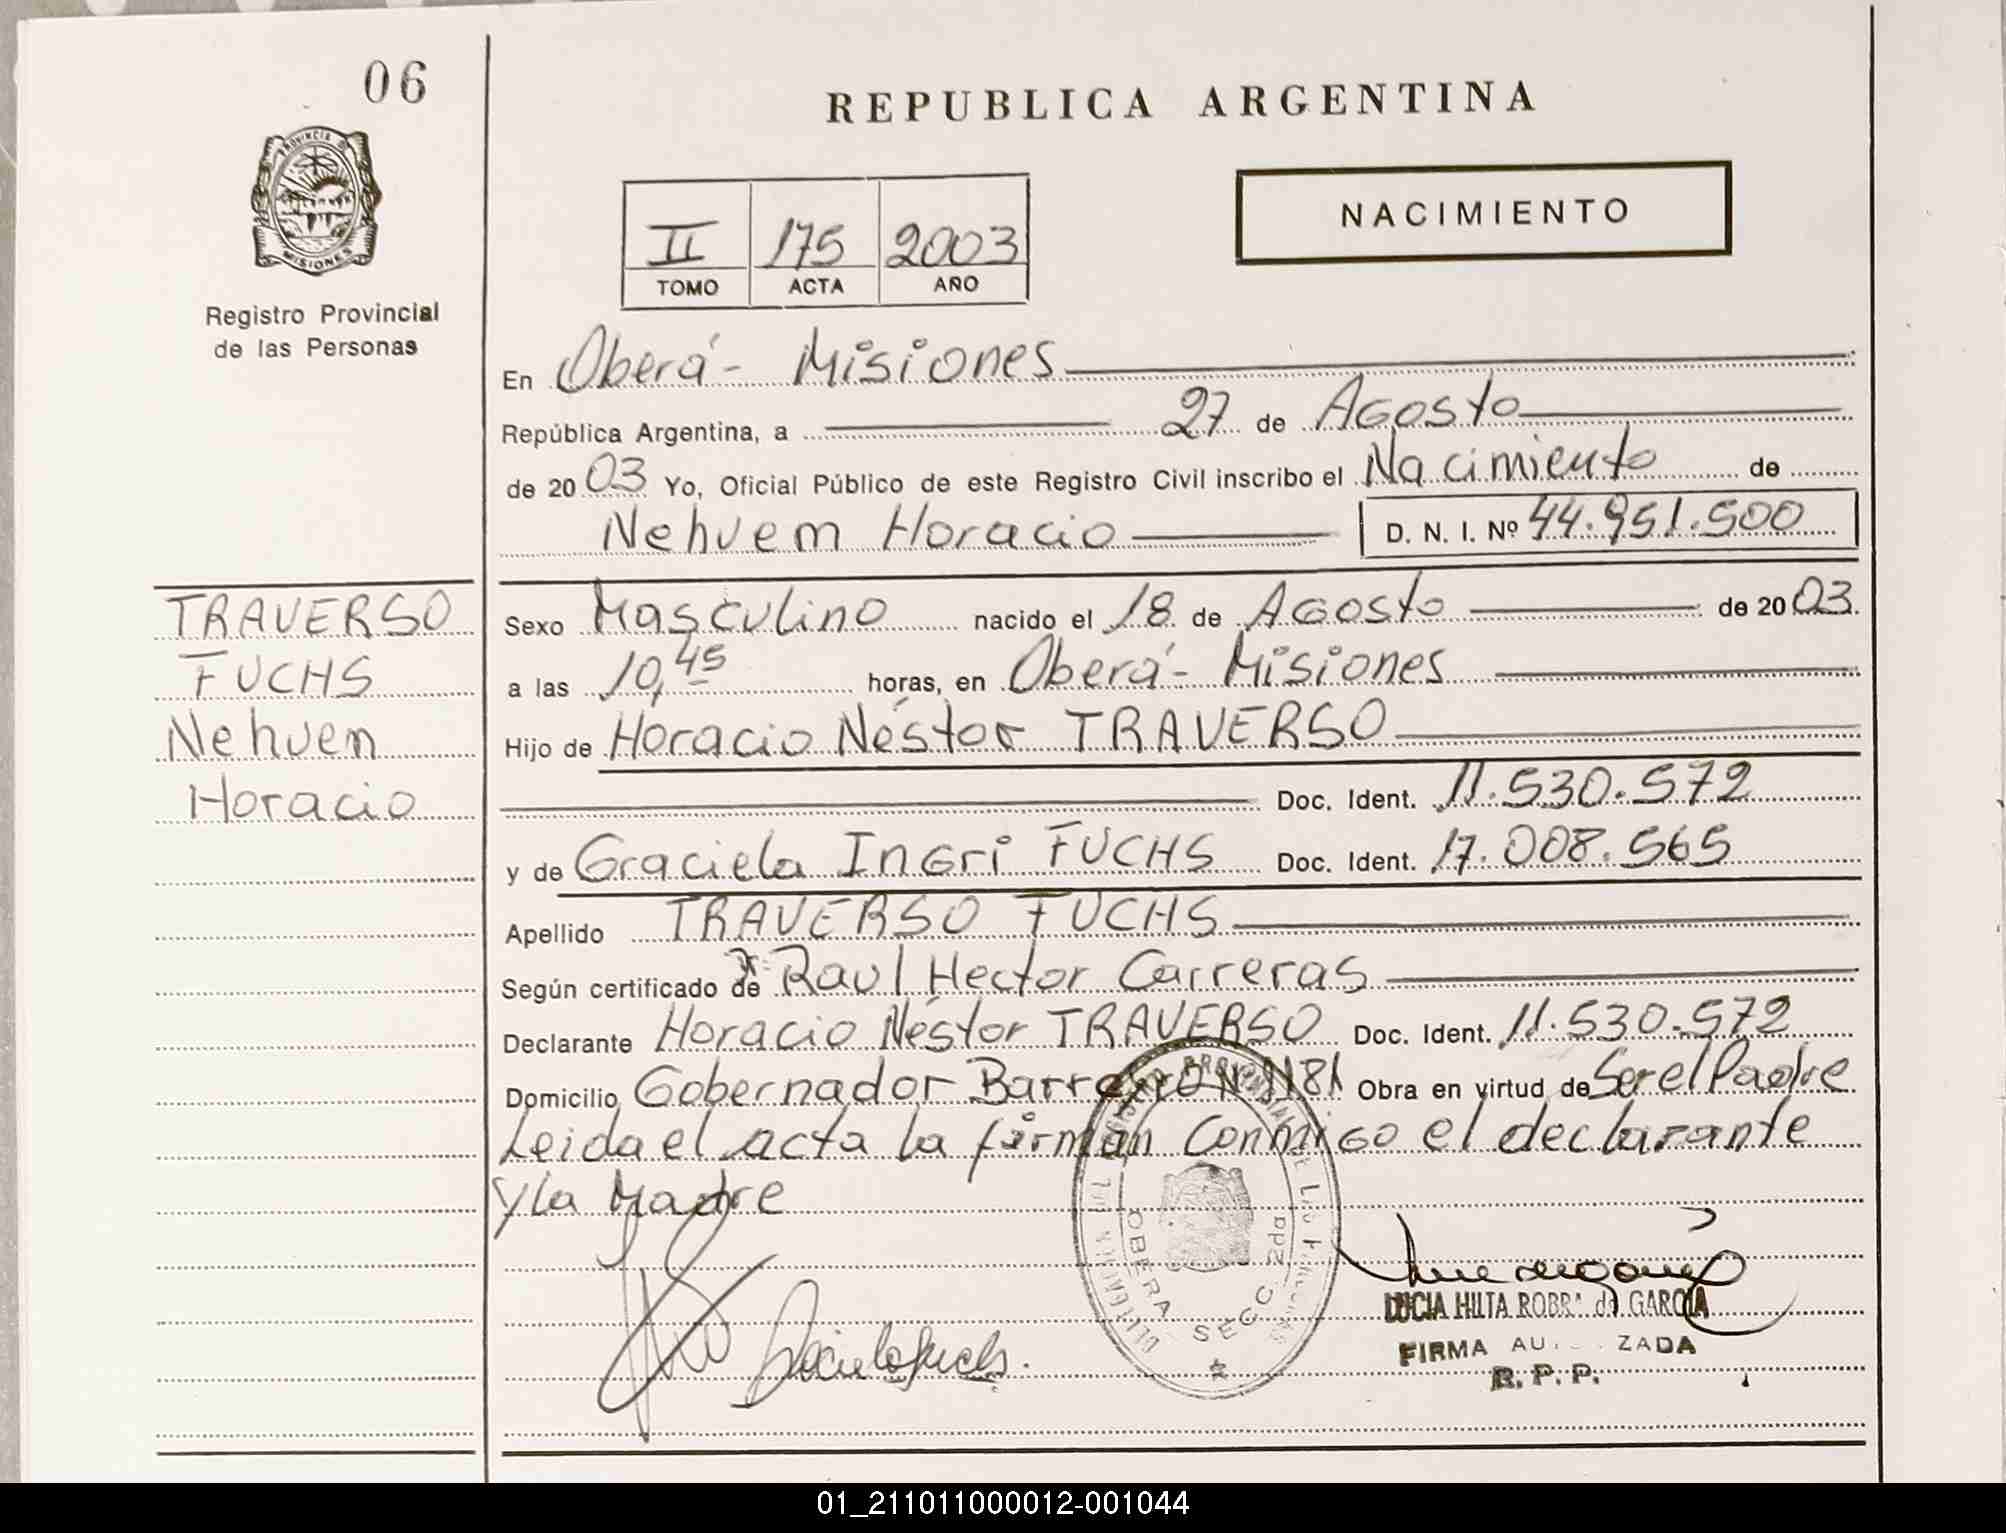 06
REPUBLICA ARGENTINA
PROVINCIA D
MISIONES
Registro Provincial
de las Personas
II 175 2003
TOMO ACTA AÑO
NACIMIENTO
En Oberá - Misiones
República Argentina, a 27 de Agosto
de 2003 Yo, Oficial Público de este Registro Civil inscribo el Nacimiento de
Nehuem Horacio D. N. I. Nº 44.951.500
TRAVERSO
FUCHS
Nehuen
Horacio
Sexo Masculino nacido el 18 de Agosto de 2003
a las 10,45 horas, en Oberá - Misiones
Hijo de Horacio Néstor TRAVERSO
Doc. Ident. 11.530.572
y de Graciela Ingri FUCHS Doc. Ident. 17.008.565
Apellido TRAVERSO FUCHS
Según certificado de Dr. Raul Hector Carreras
Declarante Horacio Néstor TRAVERSO Doc. Ident. 11.530.572
Domicilio Gobernador Obra en virtud de Ser el Padre
Leida el acta la firman Conmigo el declarante
y la Madre
OBERA SECC. 2da
LUCIA HILTA de GARCIA
FIRMA
R. P. P.
01_211011000012-001044